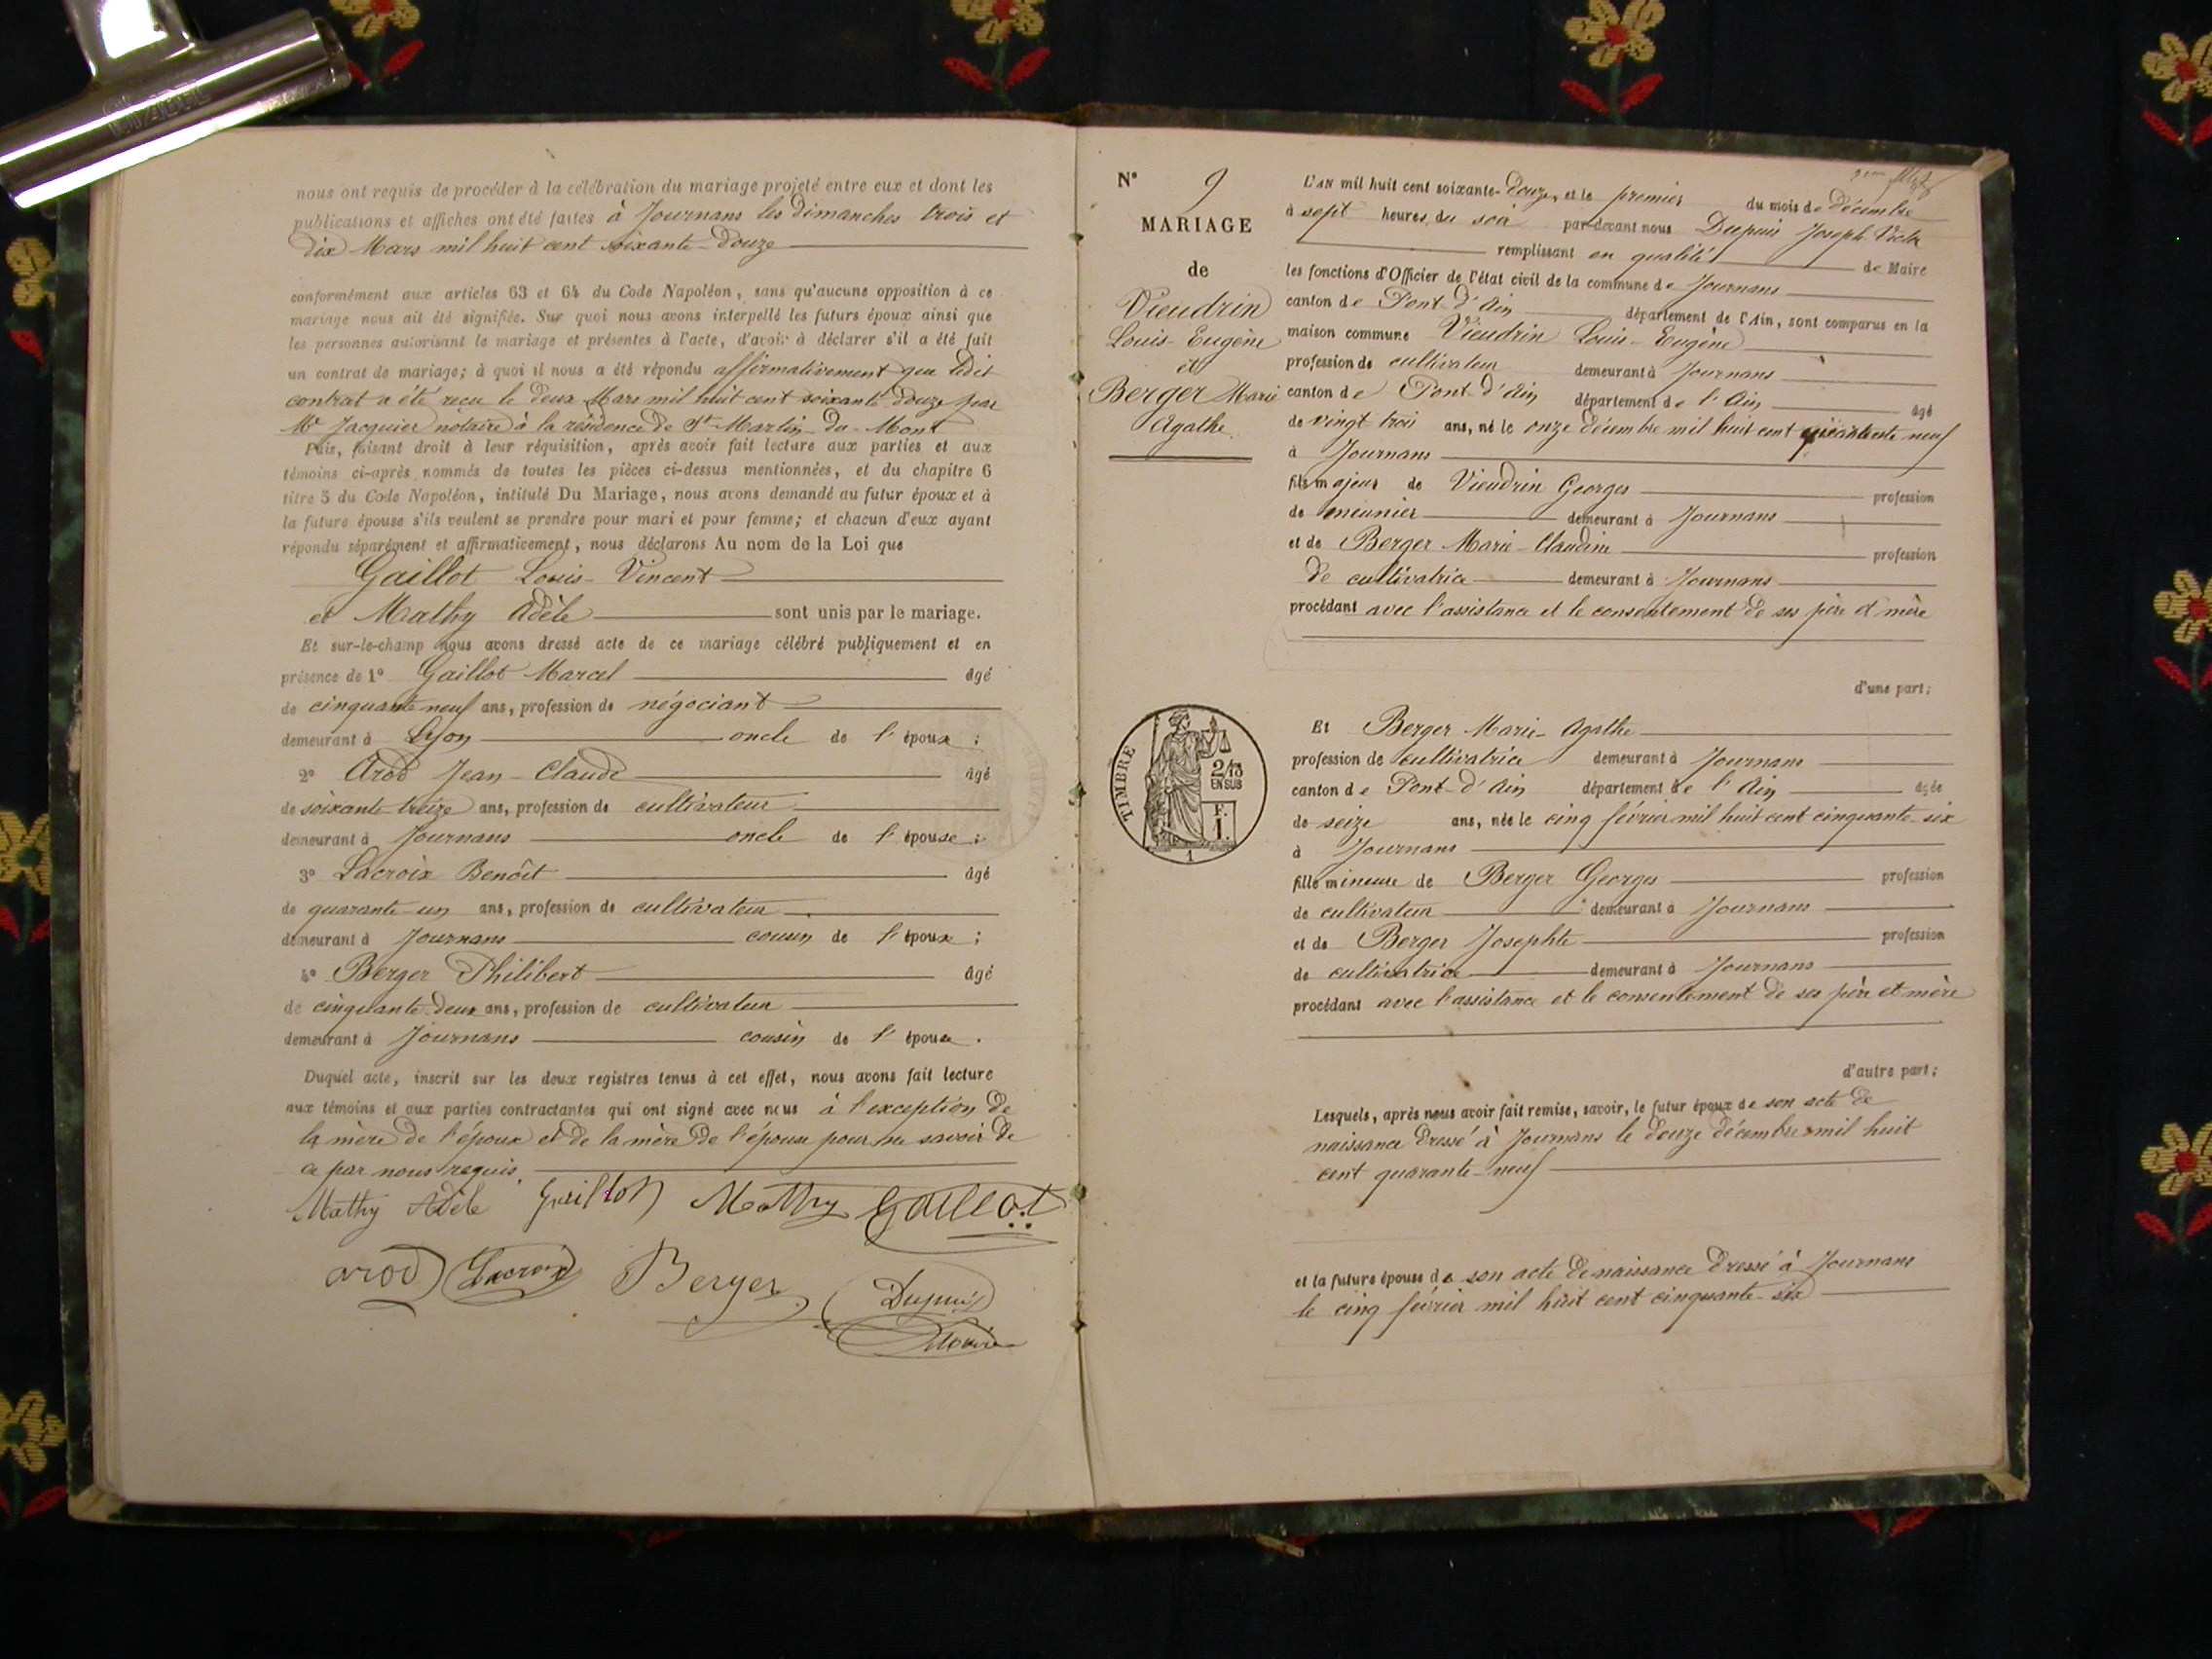 nous ont requis de procéder à la célébration du mariage projeté entre eux et dont les
publications et affiches ont été faites à Journans les Dimanches trois et
Dix Mars mil huit cent soixante-Douze
conformément aux articles 63 et 64 du Code Napoléon, sans qu'aucune opposition à ce
mariage nous ait été signifiée. Sur quoi nous avons interpellé les futurs époux ainsi que
les personnes autorisant le mariage et présentes à l'acte, d'avoir à déclarer s'il a été fait
un contrat de mariage; à quoi il nous a été répondu affirmativement que ledit
contrat a été reçu le deux Mars mil huit cent soixante Douze par
Me Jacquier notaire à la résidence de St Martin-du-Mont
Puis, faisant droit à leur réquisition, après avoir fait lecture aux parties et aux
témoins ci-après nommés de toutes les pièces ci-dessus mentionnées, et du chapitre 6
titre 5 du Code Napoléon, intitulé Du Mariage, nous avons demandé au futur époux et à
la future épouse s'ils veulent se prendre pour mari et pour femme; et chacun d'eux ayant
répondu séparément et affirmativement, nous déclarons Au nom de la Loi que
Gaillot Louis-Vincent
et Mathy Adèle sont unis par le mariage.
Et sur-le-champ nous avons dressé acte de ce mariage célébré publiquement et en
présence de 1° Gaillot Marcel âgé
de cinquante neuf ans, profession de négociant
demeurant à Lyon oncle de l'époux;
2° Arod Jean-Claude âgé
de soixante-treize ans, profession de cultivateur
demeurant à Journans oncle de l'épouse;
3° Lacroix Benoît âgé
de quarante-un ans, profession de cultivateur
demeurant à Journans cousin de l'époux;
4° Berger Philibert âgé
de cinquante-deux ans, profession de cultivateur
demeurant à Journans cousin de l'épouse.
Duquel acte, inscrit sur les deux registres tenus à cet effet, nous avons fait lecture
aux témoins et aux parties contractantes qui ont signé avec nous à l'exception de
la mère de l'époux et de la mère de l'épouse pour ne savoir de
ce par nous requis.
Mathy Adèle Gaillot Mathy Gaillot
arod Lacroix Berger Dupuis
Maire
N° 9
MARIAGE
de
Vieudrin
Louis-Eugène
et
Berger Marie
Agathe
TIMBRE
2/10
EN SUS
F.
1.
1
L'AN mil huit cent soixante-Douze, et le premier du mois de Décembre
à sept heures du soir par-devant nous Dupuis Joseph Victor
remplissant en qualité de Maire
les fonctions d'Officier de l'état civil de la commune de Journans
canton de Pont-d'Ain département de l'Ain, sont comparus en la
maison commune Vieudrin Louis-Eugène
profession de cultivateur demeurant à Journans
canton de Pont-d'Ain département de l'Ain âgé
de vingt trois ans, né le onze Décembre mil huit cent quarante neuf
à Journans
fils majeur de Vieudrin Georges profession
de meunier demeurant à Journans
et de Berger Marie-Claudine profession
de cultivatrice demeurant à Journans
procédant avec l'assistance et le consentement de ses père et mère
d'une part;
Et Berger Marie-Agathe
profession de cultivatrice demeurant à Journans
canton de Pont-d'Ain département de l'Ain âgée
de seize ans, née le cinq février mil huit cent cinquante-six
à Journans
fille mineure de Berger Georges profession
de cultivateur demeurant à Journans
et de Berger Josephte profession
de cultivatrice demeurant à Journans
procédant avec l'assistance et le consentement de ses père et mère
d'autre part;
Lesquels, après nous avoir fait remise, savoir, le futur époux de son acte de
naissance Dressé à Journans le douze décembre mil huit
cent quarante-neuf
et la future épouse de son acte de naissance Dressé à Journans
le cinq février mil huit cent cinquante-six